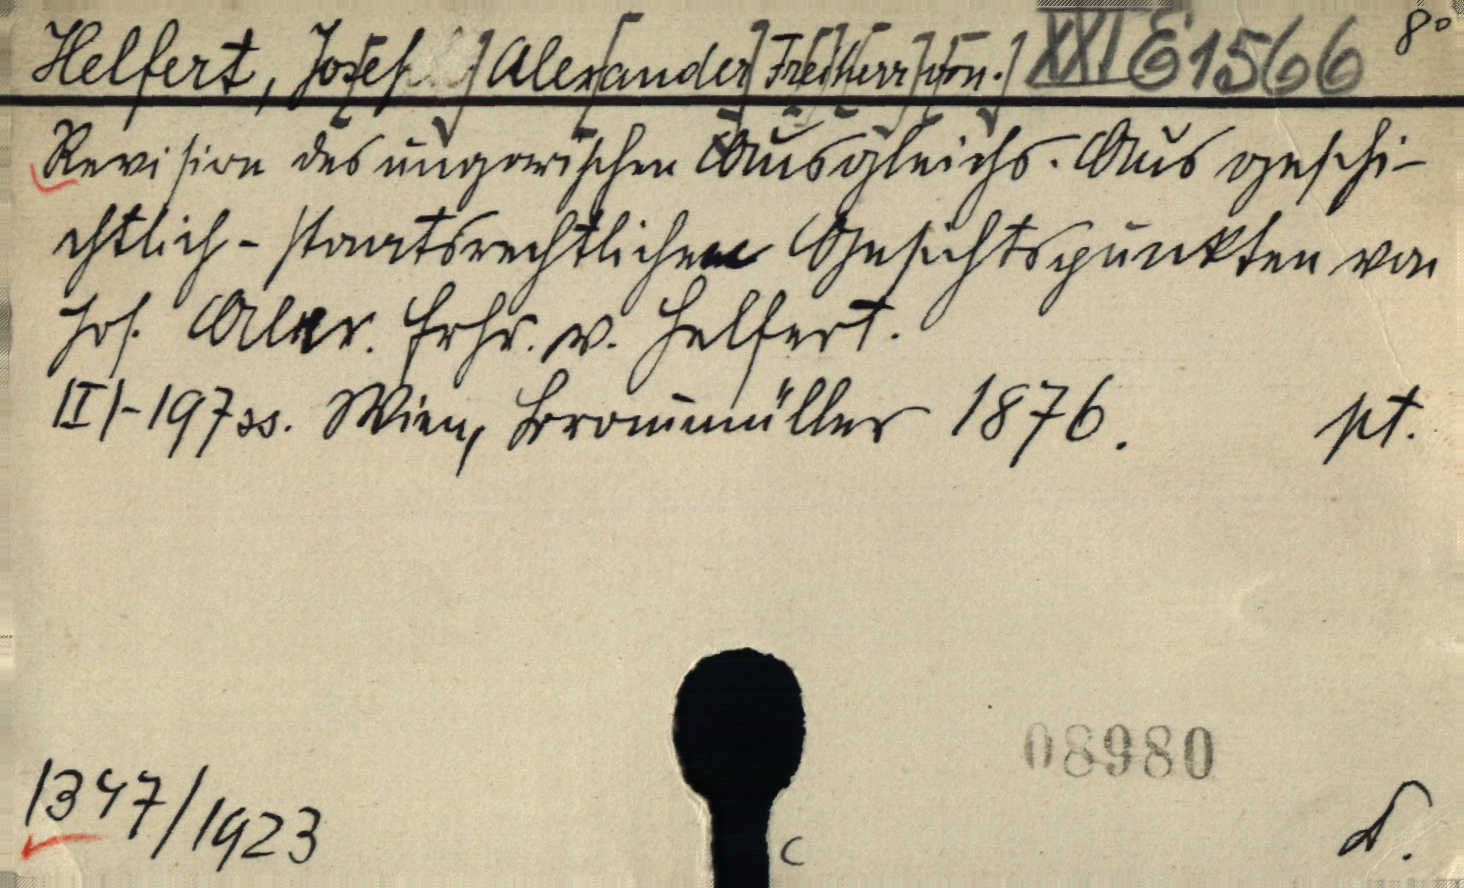 Helfert, Jos[ef] Alex[ander] Fr[ei]h[err] [von.] XXI E 1566 8°
Revision des ungarischen Ausgleichs. Aus geschi-
chtlich-staatsrechtlichen Gesichtspunkten von
Jos. Alex. Frhr. v. Helfert.
|I|-197 ss. Wien, Braumüller 1876. pt.
08980
1347/1923
C